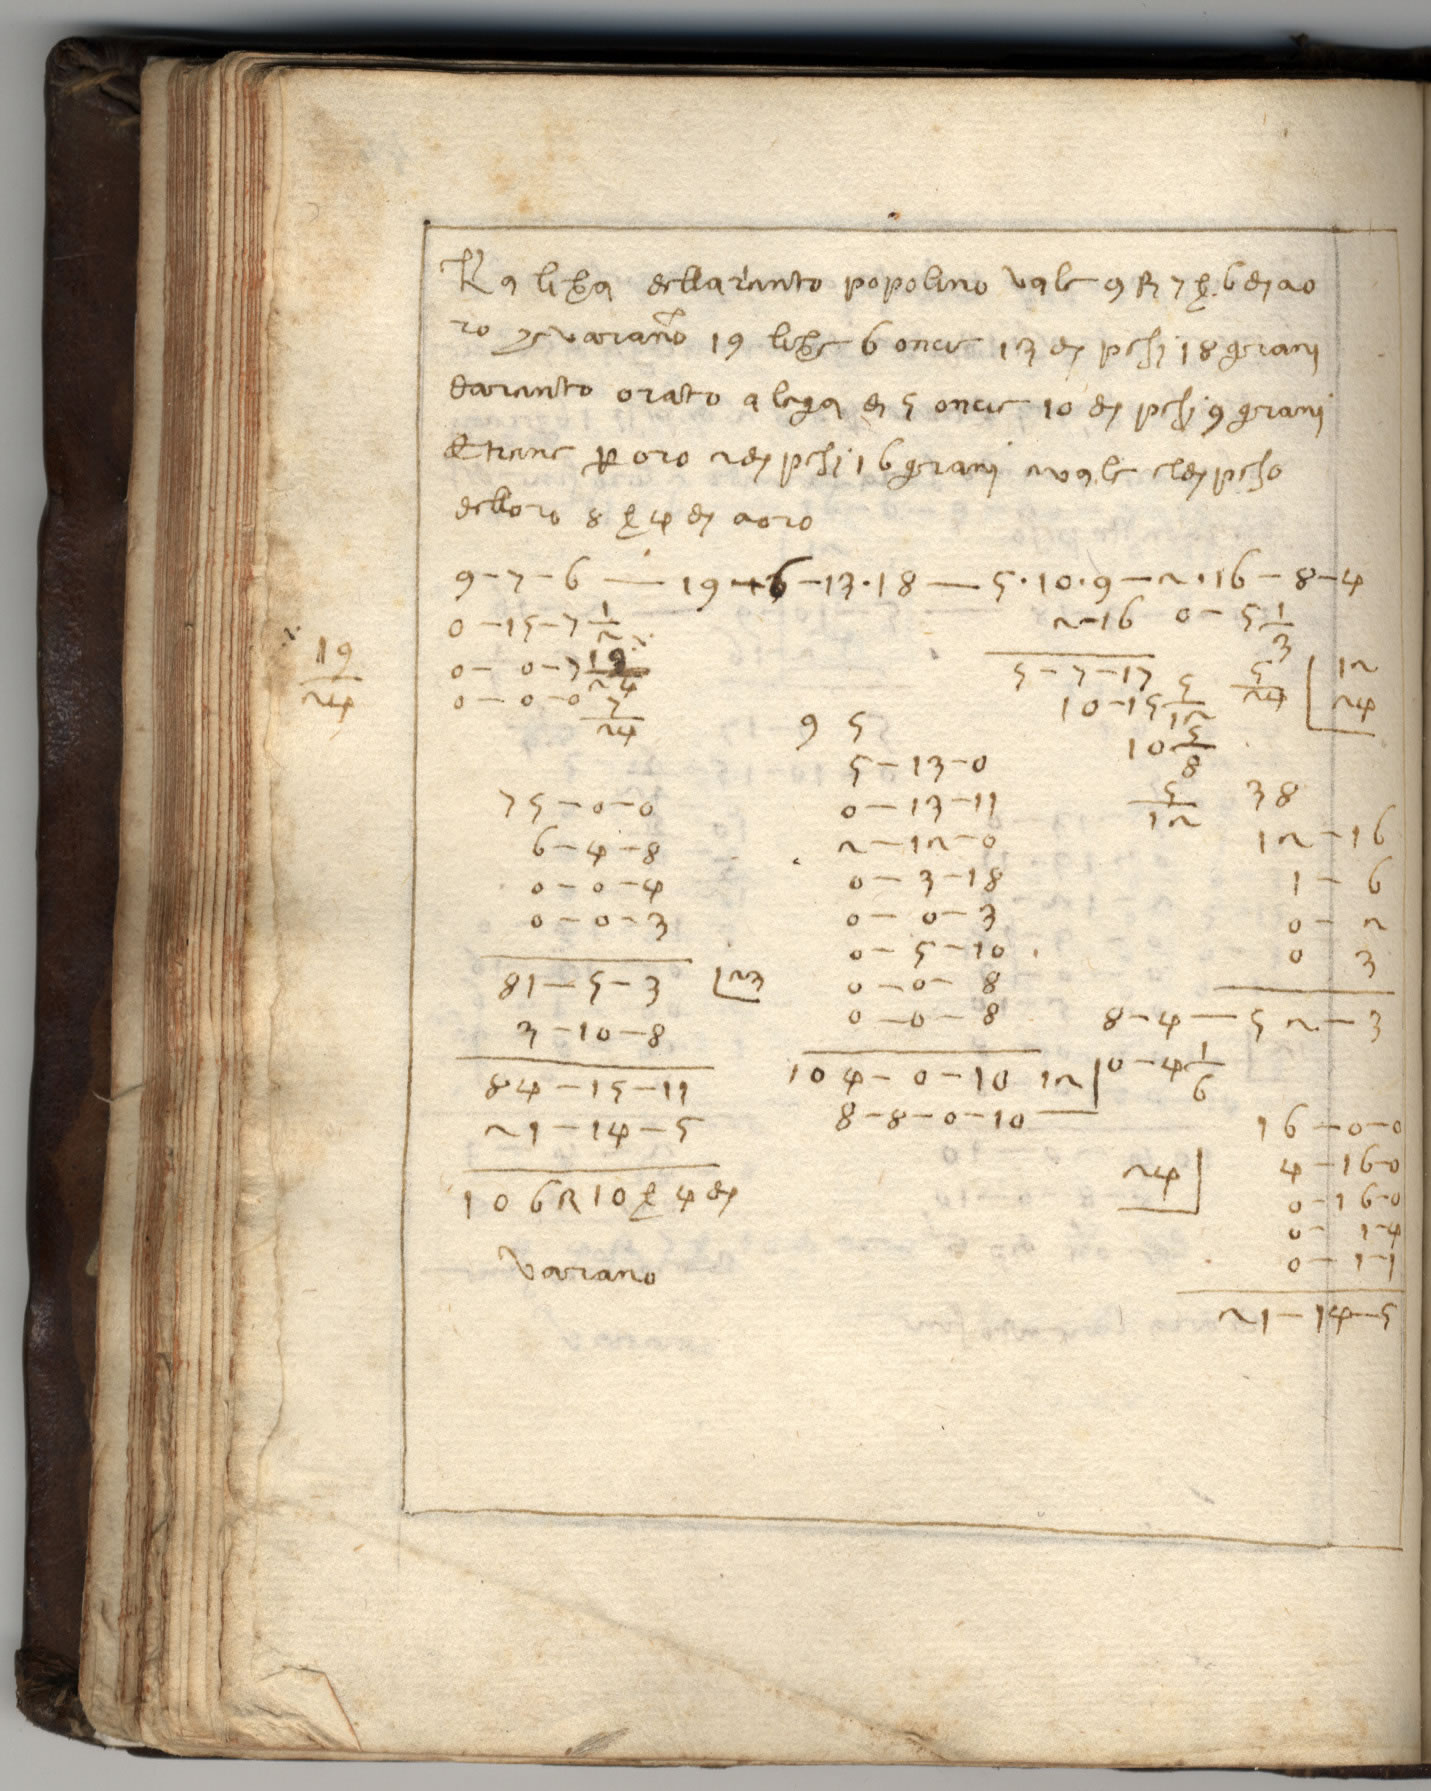 La libra dellarinto popolino vale 9 R 7 ß 6 di ao
ro varano 19 libre 6 oncie 13 di pesi 18 grani
darinto orato a lega di 5 oncie 10 di pesi 9 grani
e tiene per oro 2 di pesi 16 grani vale el di peso
delloro 8 ß 4 di aoro
9-7-6 — 19-6-13·18 — 5·10·9-2·16-8-4
0-15-7 1/2
2-16 0-5 1/3
19/24
0-0-7 19/24
5-7-17
5/24
12
24
0-0-0 5/24
10-15 5/12
9 5
10 5/8
5-13-0
5/12
38
75-0-0
0-13-11
12-16
6-4-8
2-12-0
1-6
0-0-4
0-3-18
0-2
0-0-3
0-0-3
0 3
0-5-10
81-5-3 23
0-0-8
3-10-8
0-0-8
8-4-52-3
84-15-11
104-0-10 12
0-4 1/6
21-14-5
8-8-0-10
16-0-0
24
4-16-0
106 R 10 ß 4 di
0-16-0
0-1-4
varano
0-1-1
21-14-5